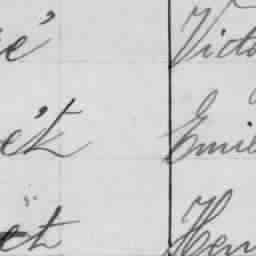 é Victo
ét Emile
et Hen